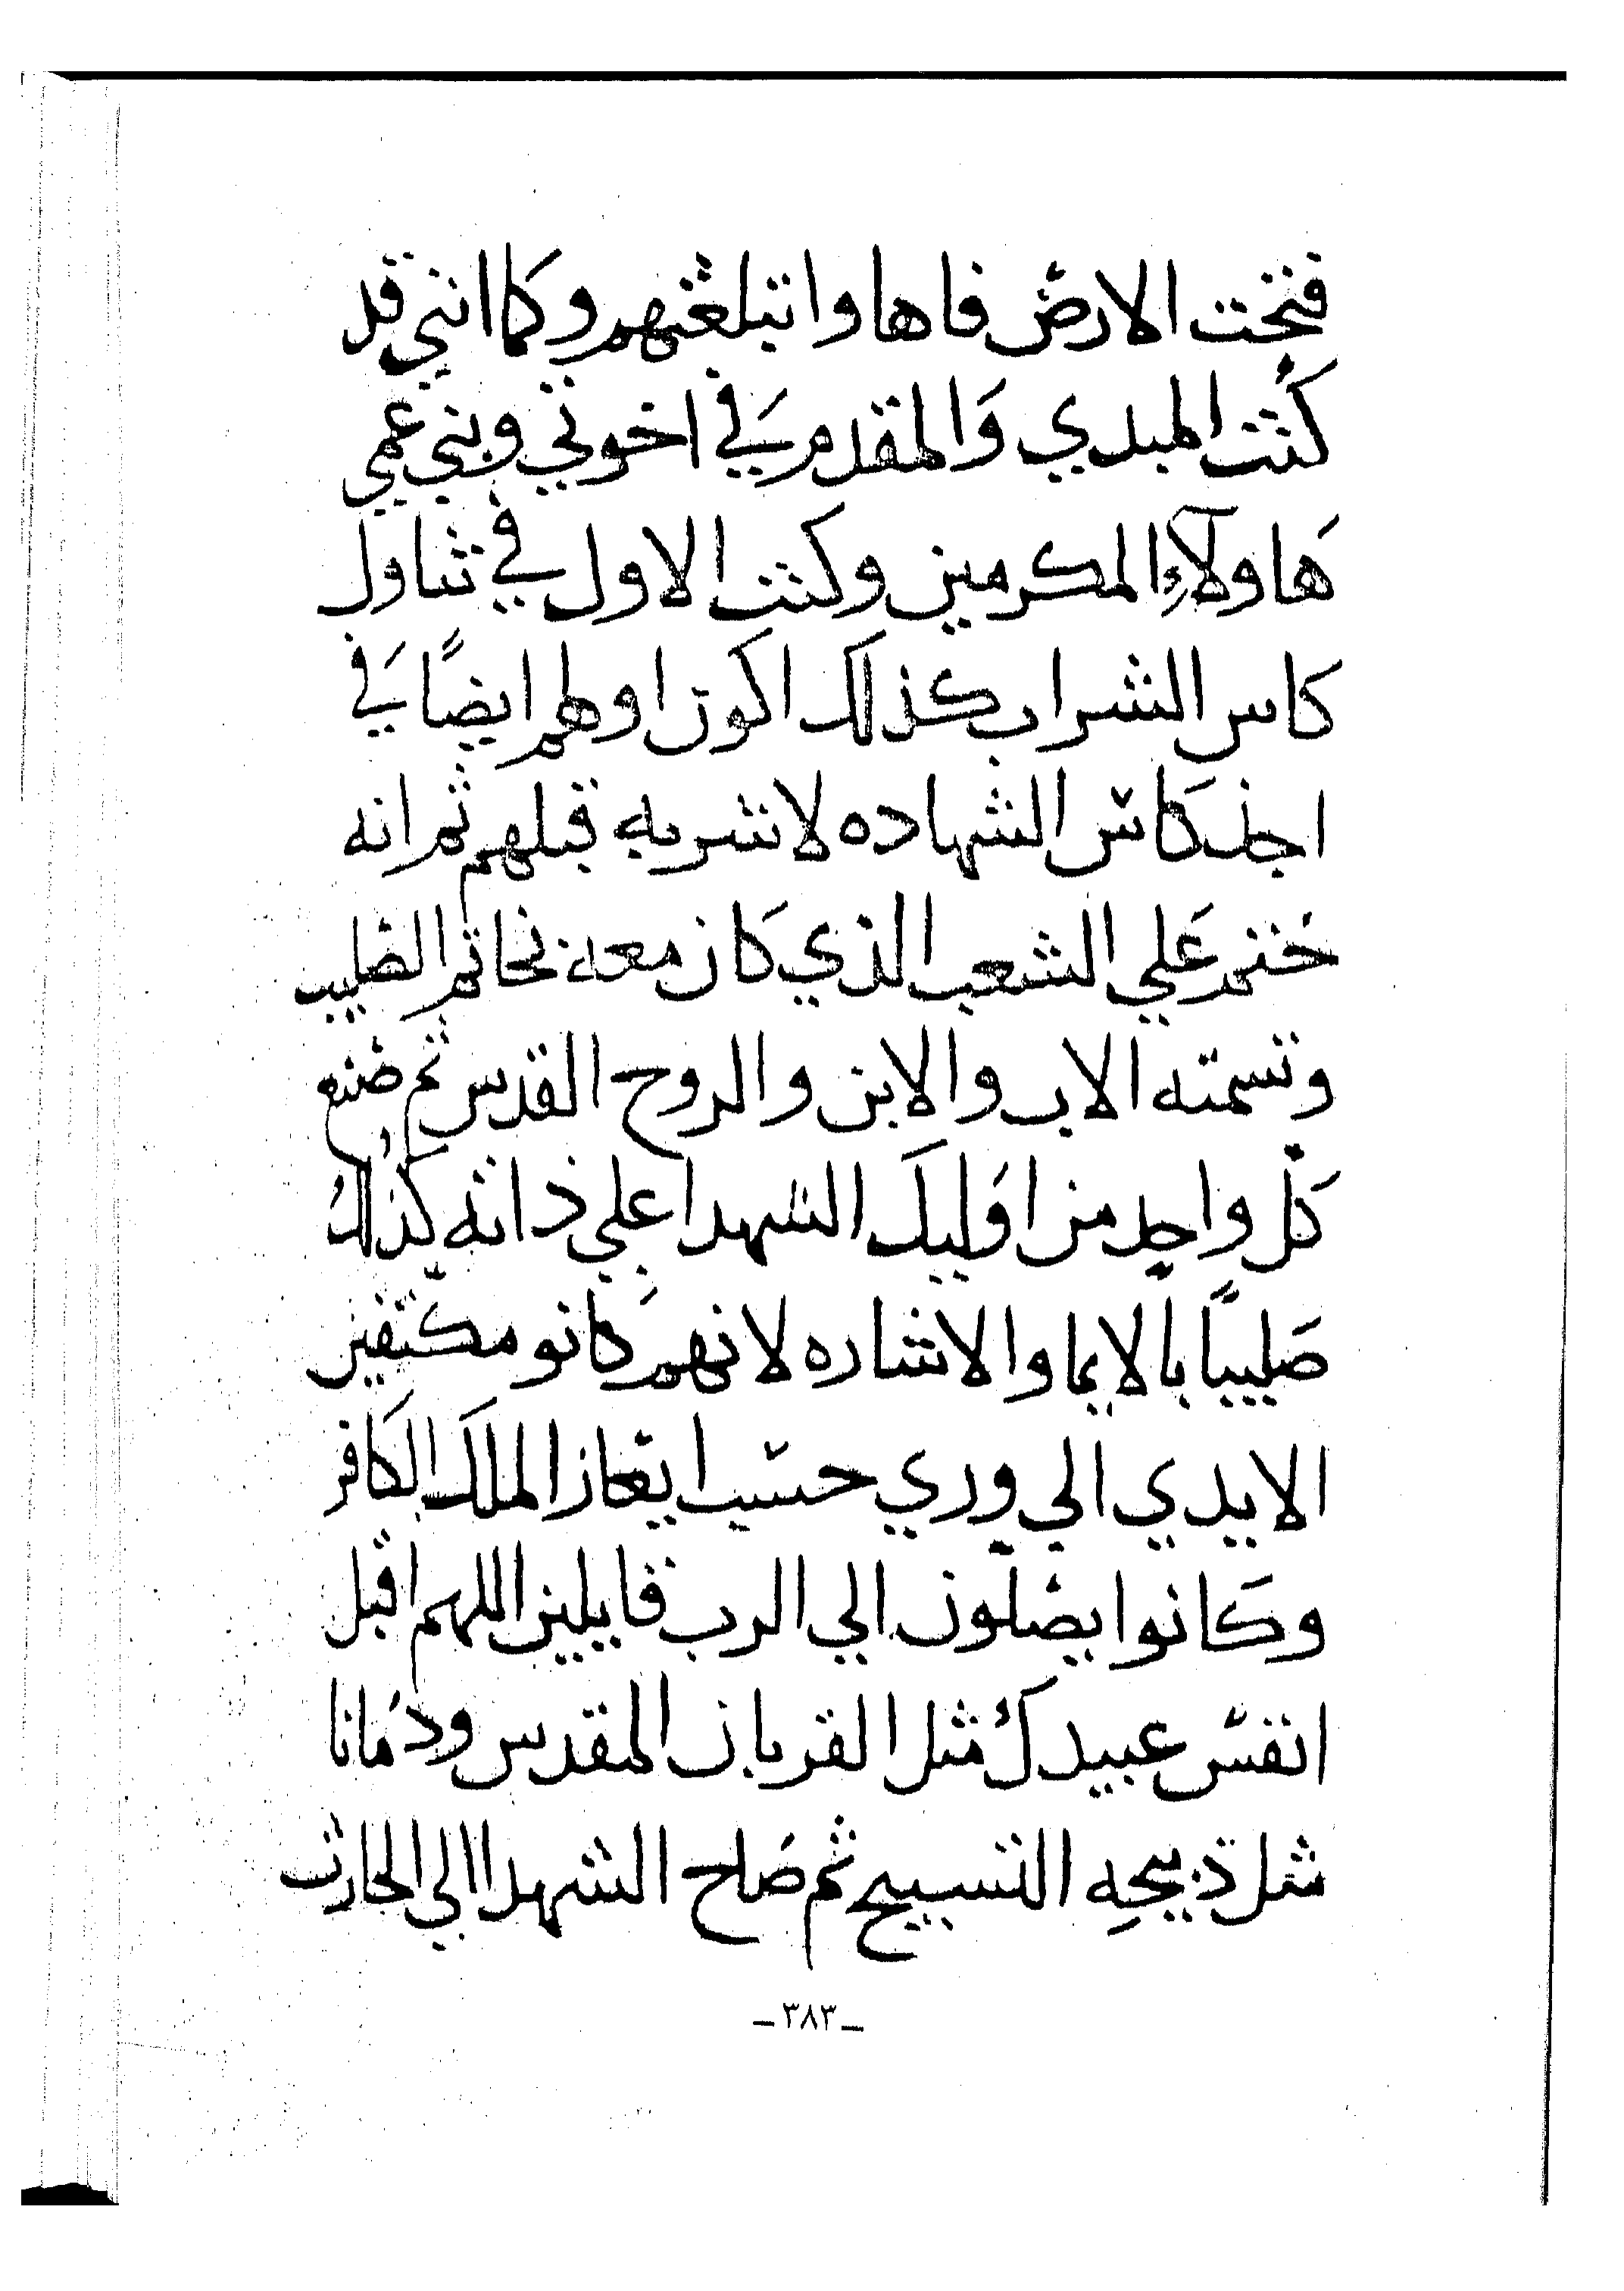 فتحت الارض فاها وابتلعتهم وكما انني قد
كنت المبدي والمقدم في اخوتي وبني عمي
هاولآء المكرمين وكنت الاول في تناول
كاس الشراب كذلك اكون اولهم ايضًا في
اخذ كاس الشهاده لاشربه قبلهم ثم انه
ختم علي الشعب الذي كان معه بخاتم الصليب
وتسمته الاب والابن والروح القدس ثم صنع
كل واحد من اوليك الشهدا علي ذاته كذلك
صليبًا بالايما والاشاره لانهم كانو مكتفين
الايدي الي وري حسب ايعاز الملك الكافر
وكانوا يصلون الي الرب قايلين اللهم اقبل
انفس عبيدك مثل القربان المقدس ودمانا
مثل ذبيحه التسبيح ثم صاح الشهدا الي الحارث
ـ٣٨٣ـ